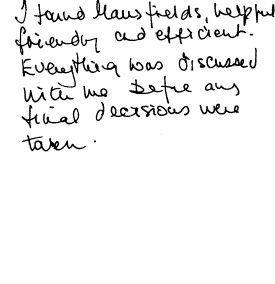 I found Mansfields, helpful
friendly and efficient.
Everything was discussed
with me before any
final decisions were
taken.